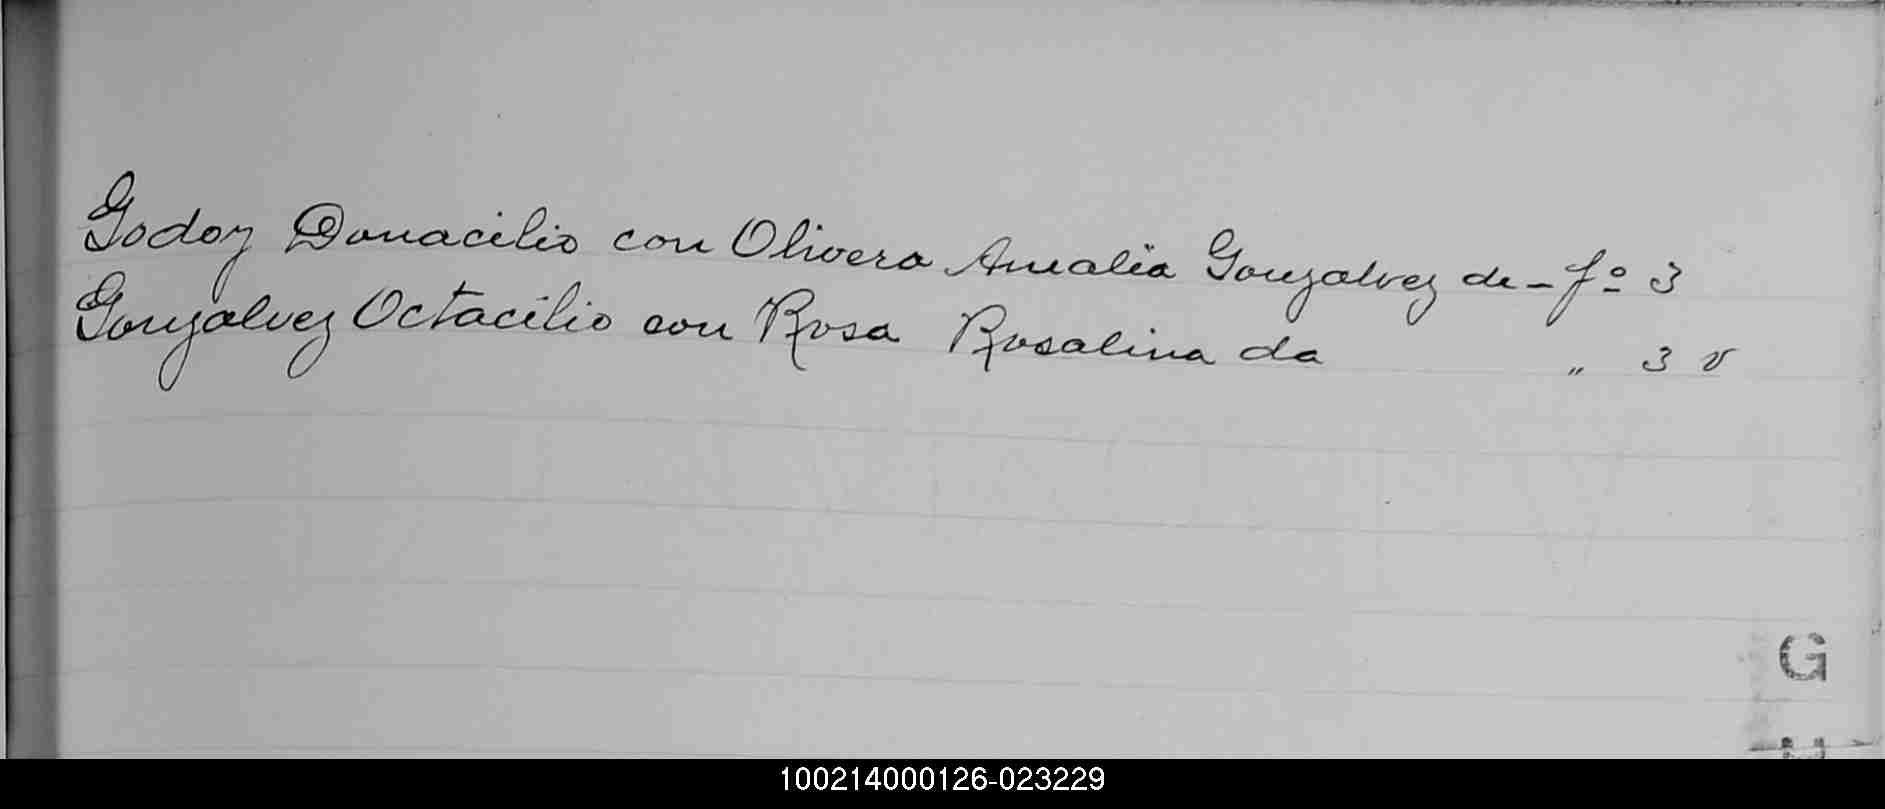 Godoy Donacilio con Olivera Amalia Gonzalvez de - fº 3
Gonzalvez Octacilio con Rosa Rosalina da " 3 v
G
100214000126-023229